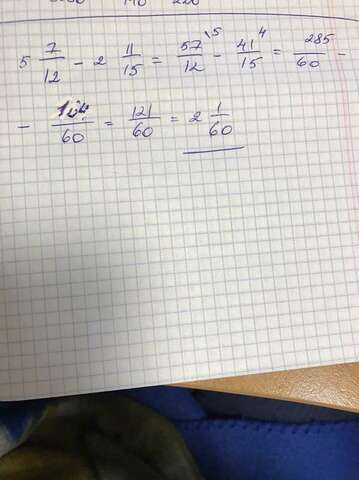 5 7/12 - 2 11/15 = 57/12 \5 - 41/15 4 = 285/60 -
- 164/60 = 121/60 = 2 1/60